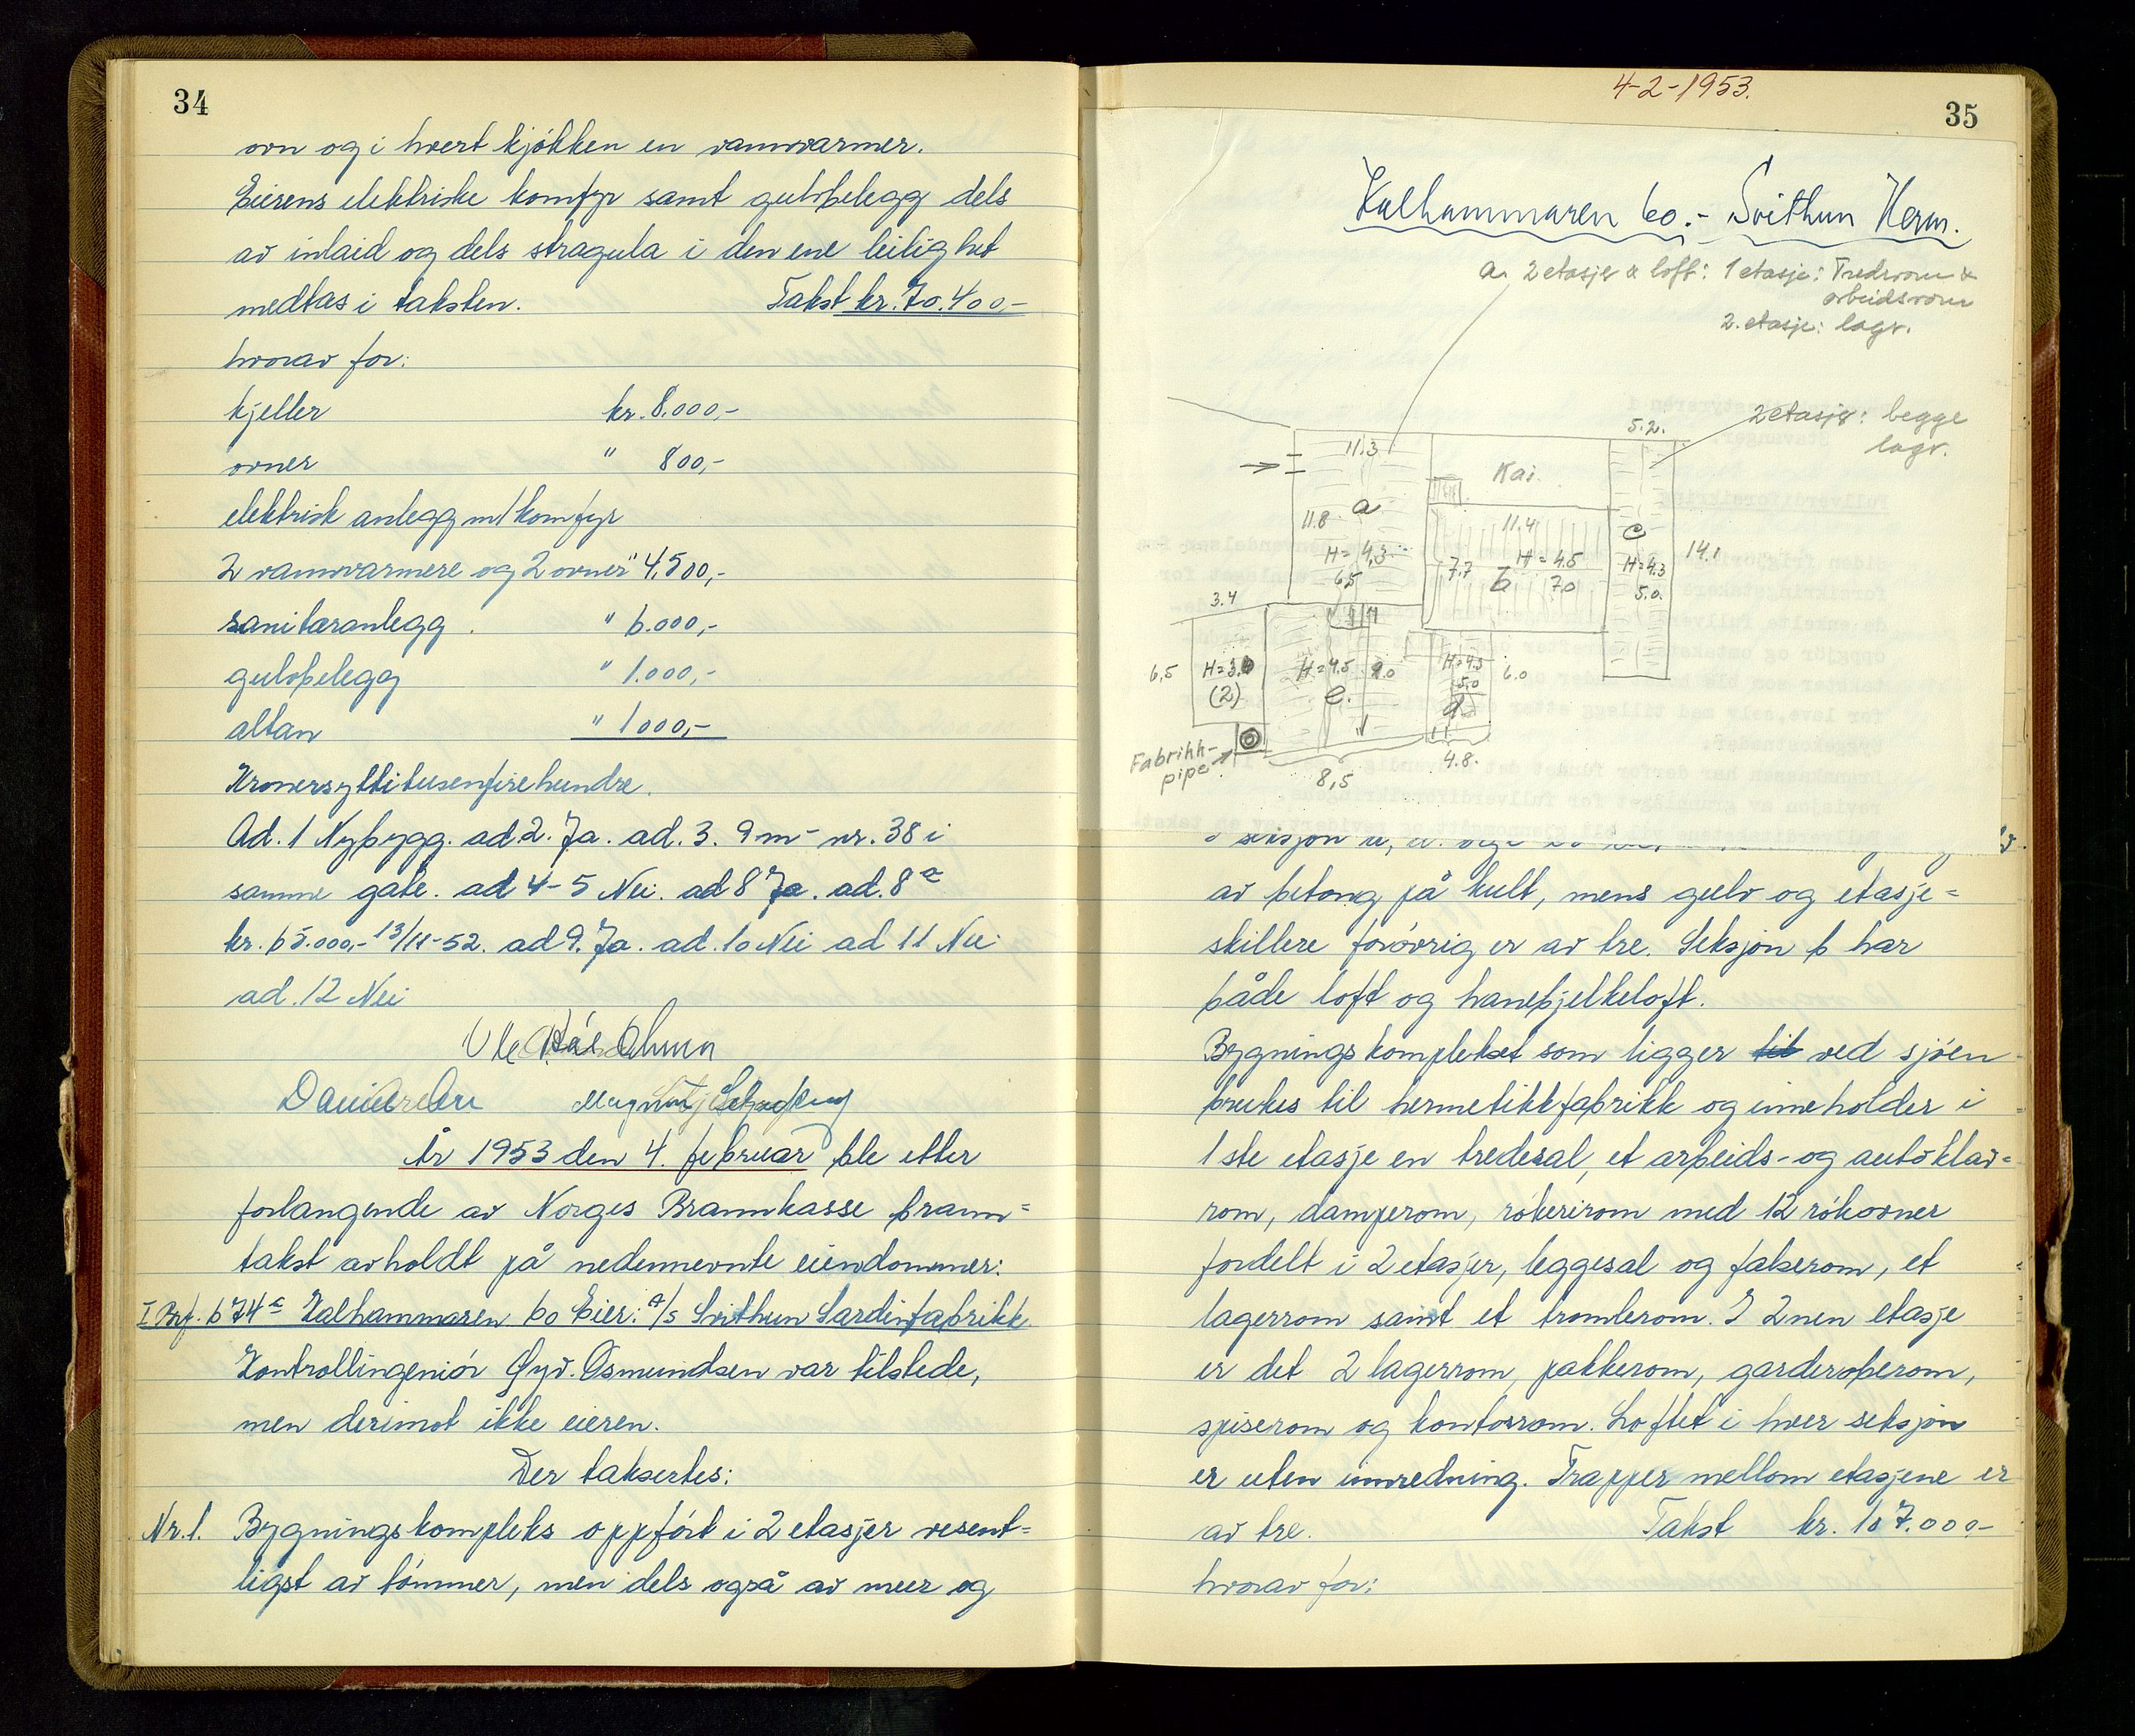 34
ovn og i hvert kjøkken en vannvarmer.
Eierens elektriske komfyr samt gulvbelegg dels
av inlaid og dels stragula i den ene leilighet
medtas i taksten. Takst kr. 70.400,-
hvorav for:
kjeller kr. 8.000,-
ovner " 800,-
elektrisk anlegg m/komfyr
2 vannvarmere og 2 ovner " 4.500,-
sanitæranlegg . " 6.000,-
gulvbelegg " 1.000,-
altan " 1000,-
Kronersyttitusenfirehundre.
Ad. 1 Nybygg. ad 2. Ja. ad. 3. 9 m - nr. 38 i
samme gate. ad 4-5 Nei. ad 8 Ja. ad. 8a
kr. 65.000,- 13/11-52. ad 9. Ja. ad. 10 Nei ad 11 Nei
ad. 12 Nei
År 1953 den 4. februar ble etter
forlangende av Norges Brannkasse brann=
takst avholdt på nedennevnte eiendommer:
I Brf. 674a Kalhammaren 60 Eier: A/S Svithun Sardinfabrikk
Kontrollingeniør Gyv. Osmundsen var tilstede,
men derimot ikke eieren.
Der taksertes:
Nr. 1. Bygningskompleks oppført i 2 etasjer vesent=
ligst av tømmer, men dels også av mur og
4-2-1953.
35
Kalhammaren 60.- Svithun Herm.
a. 2 etasjer & loft: 1 etasje: Tredrom &
arbeidsrom
2. etasje: lagr.
2 etasjer: begge
lagr.
5.2.
11.3
Kai.
11.8 a
11.4
c
H= 4,3
H= 4.5
H=4.3
14.1
6,5
7.7 b 7.0
5.0.
3.4
6,5
H=3.0
H=4.5 9.0
H=4.3
6.0
(2)
e.
5.0
d
Fabrikk-
pipe
8,5
4.8.
av betong på kult, mens gulv og etasje=
skillere forøvrig er av tre. Seksjon b har
både loft og hanebjelkeloft.
Bygningskomplekset som ligger til ved sjøen
brukes til hermetikkfabrikk og inneholder i
1 ste etasje en tredesal, et arbeids- og autoklav=
rom, damperom, røkerirom med 12 røkovner
fordelt i 2 etasjer, leggesal og falserom, et
lagerrom samt et tromlerom. I 2nen etasje
er det 2 lagerrom, pakkerom, garderoberom,
spiserom og kontorrom. Loftet i hver seksjon
er uten innredning. Trapper mellom etasjene er
av tre. Takst kr. 107.000-
hvorav for: